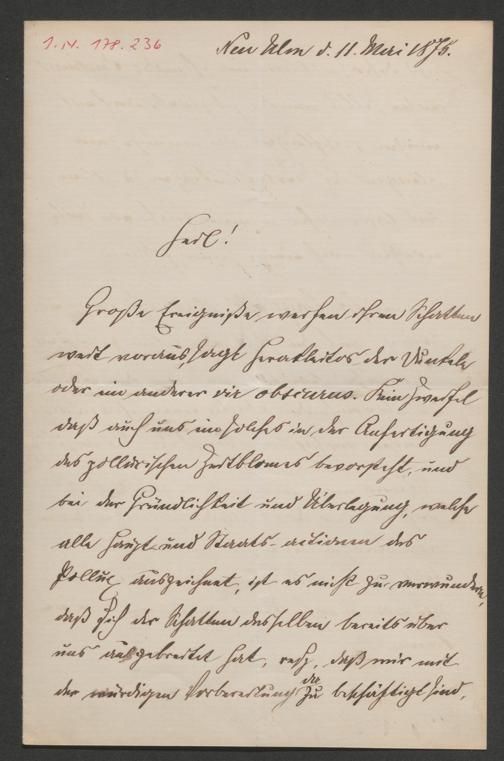 I.N. 178.236
Neu Ulm d. 11. Mai 1875.
Heil!
Große Ereigniße werfen ihren Schatten
weit voraus, sagt Herakleitos der Dunkele
oder ein anderer vir obscurus. Kein Zweifel
daß auch uns ein solches in der Anfertigung
des pollucischen Festblomes bevorsteht, und
bei der Gründlichkeit und Überlegung, welche
alle Haupt- und Staats-actionen des
Pollux auszeichnet, ist es nicht zu verwundern,
daß sich der Schatten desselben bereits über
uns ausgebreitet hat, resp. daß wir mit
der würdigen Vorbereitung dazu beschäftigt sind.